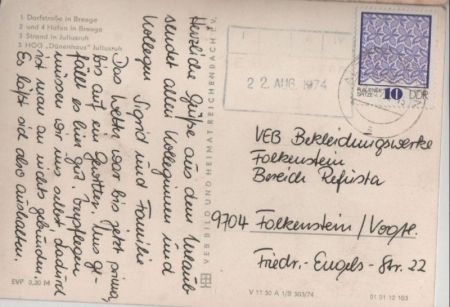 1 Dorfstraße in Breege
2 und 4 Hafen in Breege
3 Strand in Juliusruh
5 HOG „Dünenhaus" Juliusruh
Herzliche Grüße aus dem Urlaub
sendet allen Kolleginnen und
Kollegen Sigrid und Familie
Das Wetter war bis jetzt prima,
bis auf ein Gewitter. Uns ge-
fällt es hier gut. Verpflegen
müssen wir uns selbst, dadurch
ist man an nichts gebunden.
Es läßt sich also aushalten.
EVP 0,20 M
VEB BILD UND HEIMAT REICHENBACH I. V.
22. AUG. 1974
PLAUENER
SPITZE
10
DDR
VEB Bekleidungswerke
Falkenstein
Bereich Refista
9704 Falkenstein / Vogtl.
Friedr.-Engels-Str. 22
V 11 50 A 1/B 503/74
01 01 12 103